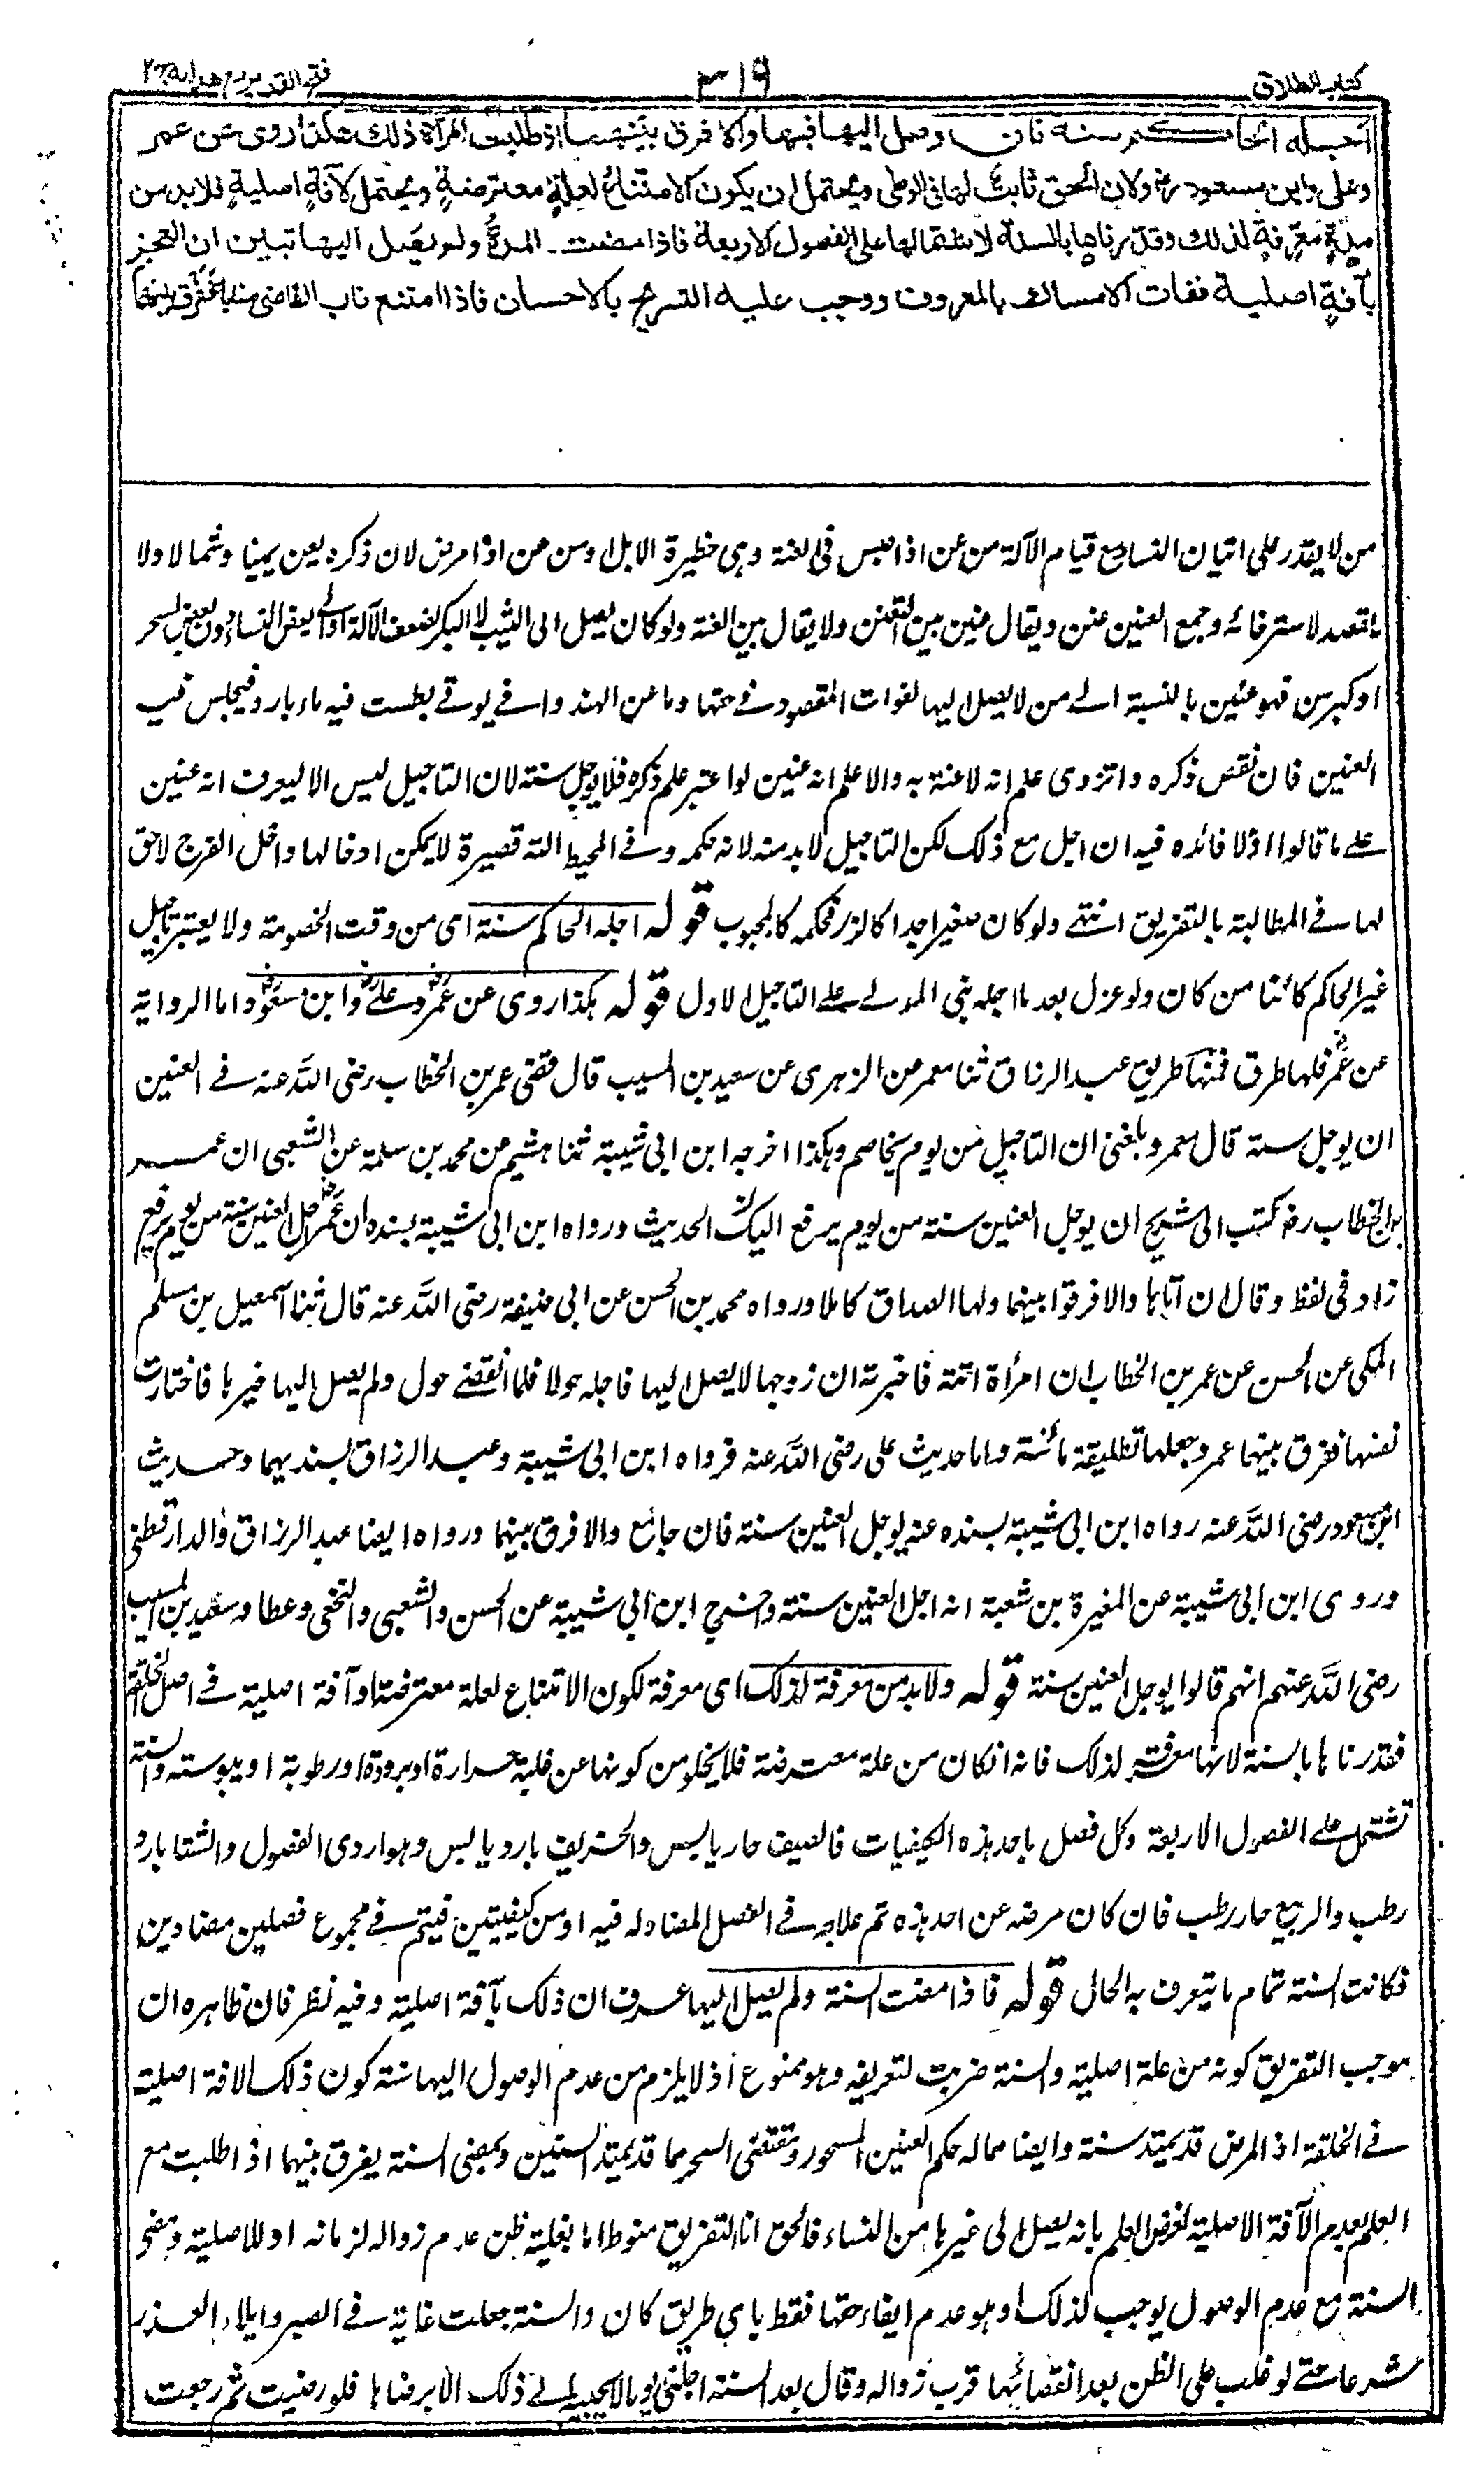 كتاب الطلاق
٣١٩
فتح القدير مع هدايه ج٢
اجله الحاكم سنة فان وصل اليها فبها والا فرق بينهما اذا طلبت المرأة ذلك هكذا روى عن عمر
وعلى وابن مسعود رض ولان الحق ثابت لها فى الوطى ويحتمل ان يكون الامتناع لعلة معترضة ويحتمل لآفة اصلية فلا بد من
مدة معرفة لذلك وقدرناها بالسنة لاشتمالها على الفصول الاربعة فاذا مضت المدة ولم يصل اليها تبين ان العجز
بآفة اصلية ففات الامساك بالمعروف ووجب عليه التسريح بالاحسان فاذا امتنع ناب القاضى منابه ففرق بينهما
من لا يقدر على اتيان النساء مع قيام الآلة من عن اذا حبس فى العنة وهى حظيرة الابل او من عن اذا مرض لان ذكره يعن يمينا وشمالا ولا
يقصد لاسترخائه وجمع العنين عنن ويقال عنين بين التعنن ولا يقال بين العنة ولو كان يصل الى الثيب لا البكر لضعف الآلة او الى بعض النساء دون بعض لسحر
او كبر سن فهو عنين بالنسبة الى من لا يصل اليها لفوات المقصود فى حقها وما عن الهندوانى يوتى بطست فيه ماء بارد فيجلس فيه
العنين فان نقص ذكره وانزوى علم انه لا عنة به والا علم انه عنين لو اعتبر علم ذكره فلا يوجل سنة لان التاجيل ليس الا ليعرف انه عنين
على ما قالوا اذ لا فائده فيه ان اجل مع ذلك لكن التاجيل لا بد منه لانه حكمه وفى المحيط آلته قصيرة لا يمكن ادخالها داخل الفرج لا حق
لها فى المطالبة بالتفريق انتهى ولو كان صغيرا جدا كالزر فحكمه كالمجبوب قوله اجله الحاكم سنة اى من وقت الخصومة ولا يعتبر تاجيل
غير الحاكم كائنا من كان ولو عزل بعد ما اجله بنى المولى على التاجيل الاول قوله هكذا روى عن عمر وعلى وابن مسعود اما الرواية
عن عمر فلها طرق فمنها طريق عبد الرزاق ثنا معمر عن الزهرى عن سعيد بن المسيب قال قضى عمر بن الخطاب رضى الله عنه فى العنين
ان يوجل سنة قال معمر وبلغنى ان التاجيل من يوم يخاصم وهكذا اخرجه ابن ابى شيبة ثنا هشيم عن محمد بن سلمة عن الشعبى ان عمر
بن الخطاب رض كتب الى شريح ان يوجل العنين سنة من يوم يرفع اليك الحديث ورواه ابن ابى شيبة بسنده ان عمر اجل العنين سنة من يوم يرفع
زاد فى لفظ وقال ان آتاها والا فرقوا بينهما ولها الصداق كاملا ورواه محمد بن الحسن عن ابى حنيفة رضى الله عنه قال ثنا اسمعيل بن مسلم
المكى عن الحسن عن عمر بن الخطاب ان امرأة اتته فاخبرته ان زوجها لا يصل اليها فاجله حولا فلما انقضى حول ولم يصل اليها خيرها فاختارت
نفسها ففرق بينهما عمر وجعلها تطليقة بائنة واما حديث على رضى الله عنه فرواه ابن ابى شيبة وعبد الرزاق بسنديهما وحديث
ابن مسعود رضى الله عنه رواه ابن ابى شيبة بسنده عنه يوجل العنين سنة فان جامع والا فرق بينهما ورواه ايضا عبد الرزاق والدارقطنى
وروى ابن ابى شيبة عن المغيرة بن شعبة انه اجل العنين سنة واخرج ابن ابى شيبة عن الحسن والشعبى والنخعى وعطاء وسعيد بن المسيب
رضى الله عنهم انهم قالوا يوجل العنين سنة قوله ولا بد من معرفة لذلك اى معرفة لكون الامتناع لعلة معترضة او آفة اصلية فى اصل الخلقة
فقدرناها بالسنة لانها معرفة لذلك فانه ان كان من علة معترضة فلا يخلو من كونها عن غلبة حرارة او برودة او رطوبة او يبوسة والسنة
تشتمل على الفصول الاربعة وكل فصل باحد هذه الكيفيات فالصيف حار يابس والخريف بارد يابس وهو اردى الفصول والشتا بارد
رطب والربيع حار رطب فان كان مرضه عن احد هذه تم علاجه فى الفصل المضاد له فيه او من كيفيتين فيتم فى مجموع فصلين مضادين
فكانت السنة تمام ما يتعرف به الحال قوله فاذا مضت السنة ولم يصل اليها عرف ان ذلك بآفة اصلية وفيه نظر فان ظاهره ان
موجب التفريق كونه من علة اصلية والسنة ضربت لتعريفه وهو ممنوع اذ لا يلزم من عدم الوصول اليها سنة كون ذلك لآفة اصلية
فى الخلقة اذ المرض قد يمتد سنة وايضا مما له حكم العنين المسحور ومقتضى السحر مما قد يمتد السنين وبمضى السنة يفرق بينهما اذا طلبت مع
العلم بعدم الآفة الاصلية لفرض العلم بانه يصل الى غيرها من النساء فالحق ان التفريق منوط اما بغلبة ظن عدم زواله لزمانه او للاصلية ومضى
السنة مع عدم الوصول يوجب لذلك او هو عدم ايفاء حقها فقط باى طريق كان والسنة جعلت غاية فى الصبر وابلاء العذر
شرعا حتى لو غلب على الظن بعد انقضائها قرب زواله وقال بعد السنة اجلنى يوما لا يجيبه الى ذلك الا برضاها فلو رضيت ثم رجعت